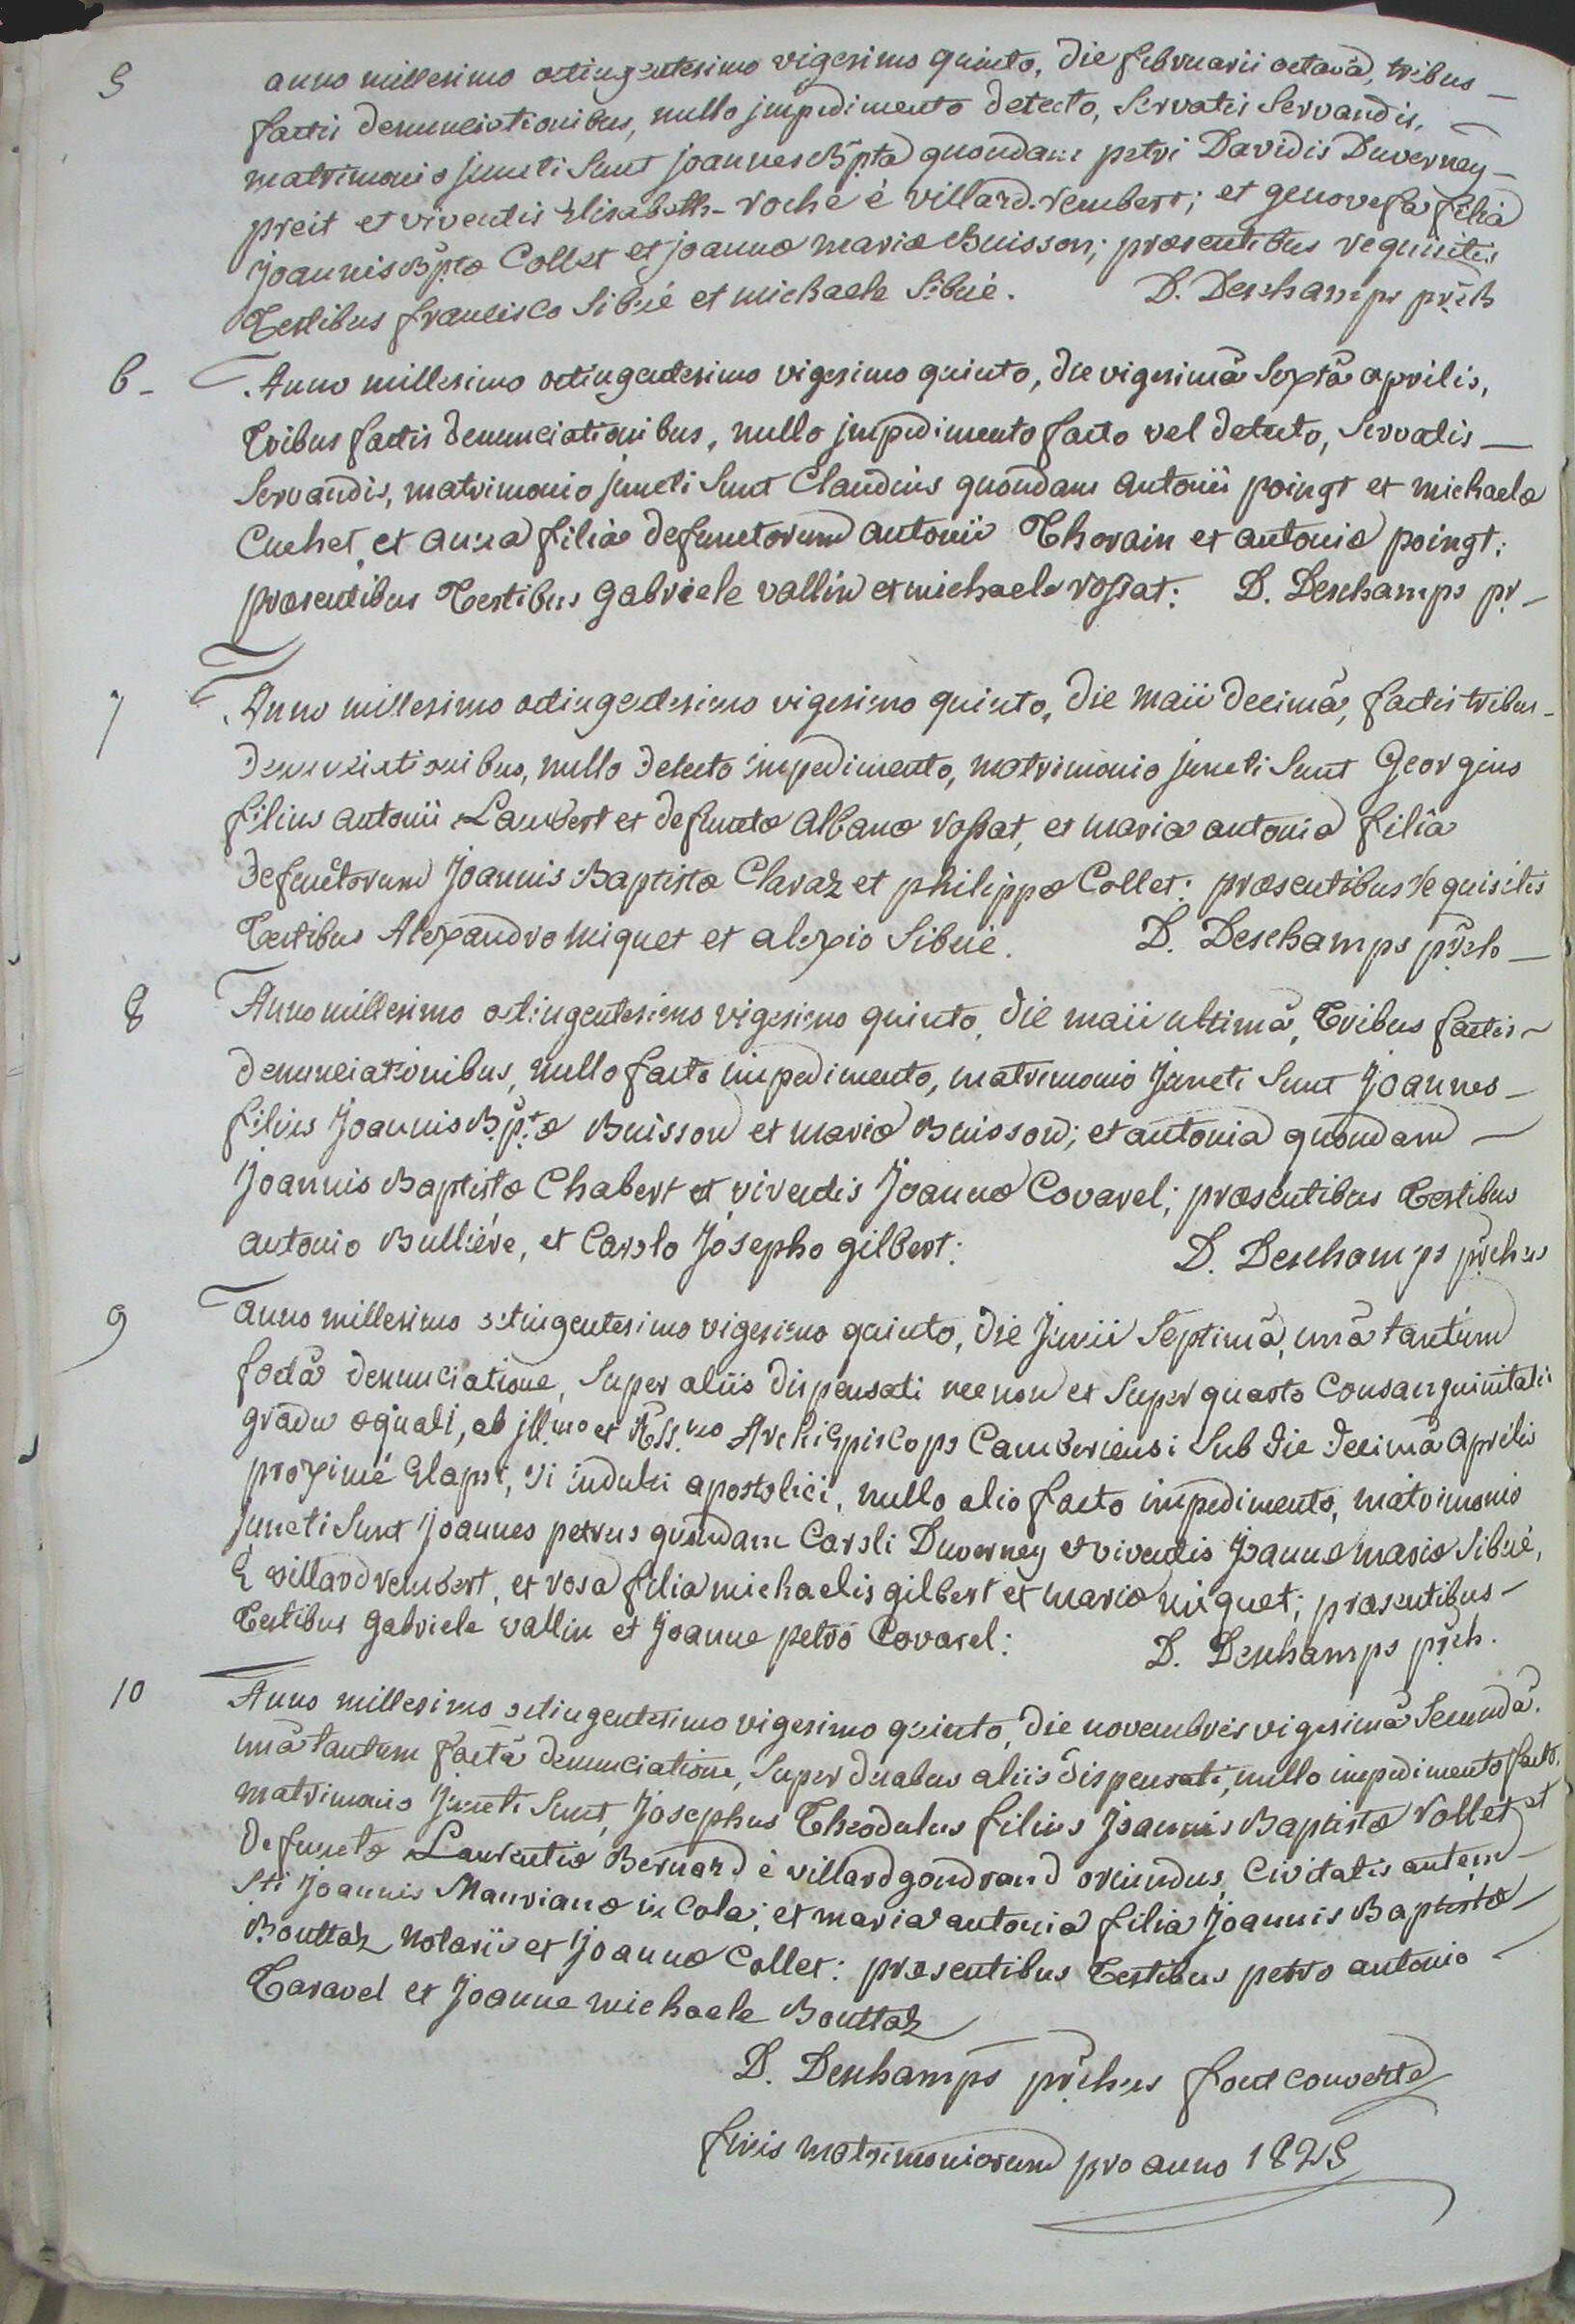 5 anno millesimo octingentesimo vigesimo quinto, die februarii octavâ, tribus
factis denunciationibus, nullo jmpedimento detecto, Servatis Servandis,
matrimonio juncti Sunt joannes Bpta quondam petri Davidis Duverney
preit et viventis Elisabeth-roche è villard-rembert; et genovefa filia
joannis Bptæ Collet et joannæ mariæ Buisson; præsentibus requisitis
Testibus francisco Sibué et michaele Sibué. D. Deschamps prch
6- Anno millesimo octingentesimo vigesimo quinto, die vigesimâ Sextâ aprilis,
Tribus factis denunciationibus, nullo jmpedimento facto vel detecto, Servatis
Servandis, matrimonio juncti Sunt Claudius quondam antonii poingt et michaelæ
Cuchet, et anna filia defunctorum antonii Thorain et antoniæ poingt;
præsentibus Testibus gabriele vallin et michaele rossat: D. Deschamps pr
7 Anno millesimo octingentesimo vigesimo quinto, die maii decimâ, factis tribus
denunciationibus, nullo detecto impedimento, matrimonio juncti Sunt Georgius
filius antonii Lambert et defunctæ albanæ rossat, et maria antonia filia
defunctorum Joannis Baptistæ Claraz et philippæ Collet: præsentibus requisitis
Testibus Alexandro miquet et alexio Sibué. D. Deschamps prch
8 Anno millesimo octingentesimo vigesimo quinto, die maii ultimâ, Tribus factis
denunciationibus, nullo facto impedimento, matrimonio Juncti Sunt Joannes
filius Joannis Bptæ Buisson et mariæ Buisson; et antonia quondam
Joannis Baptistæ Chabert et viventis Joannæ Covarel; præsentibus Testibus
antonio Bulliére, et Carolo Josepho gilbert: D. Deschamps prchus
9 anno millesimo octingentesimo vigesimo quinto, die Junii Septimâ, unâ tantùm
factâ denunciatione, Super aliis dispensati necnon et Super quarto Consanguinitatis
gradu æquali, ab jll.mo et R.ss.mo Archiepiscopo Camberiensi Sub die decimâ aprilis
proximé Elapsi, vi indulti apostolici, nullo alio facto impedimento, matrimonio
Juncti Sunt Joannes petrus quondam Caroli Duverney et viventis Joannæ mariæ Sibué,
È villardrembert, et rosa filia michaelis gilbert et mariæ miquet; præsentibus
Testibus gabriele vallin et Joanne petro Covarel: D. Deschamps prch.
10 Anno millesimo octingentesimo vigesimo quinto, die novembris vigesimâ Secundâ.
unâ tantum factâ denunciatione, Super duabus aliis dispensati, nullo impedimento facto.
matrimonio Juncti Sunt, Josephus Theodulus filius Joannis Baptistæ Vollet et
defunctæ Laurentiæ Bernard è villardgondrand oriundus, Civitatis autem
Sti Joannis Maurianæ incola; et maria antonia filia Joannis Baptistæ
Bouttaz notarii et Joannæ Collet: præsentibus Testibus petro antonio
Taravel et Joanne michaele Bouttaz
D. Deschamps prchus fontcouverte
finis matrimoniorum pro anno 1825